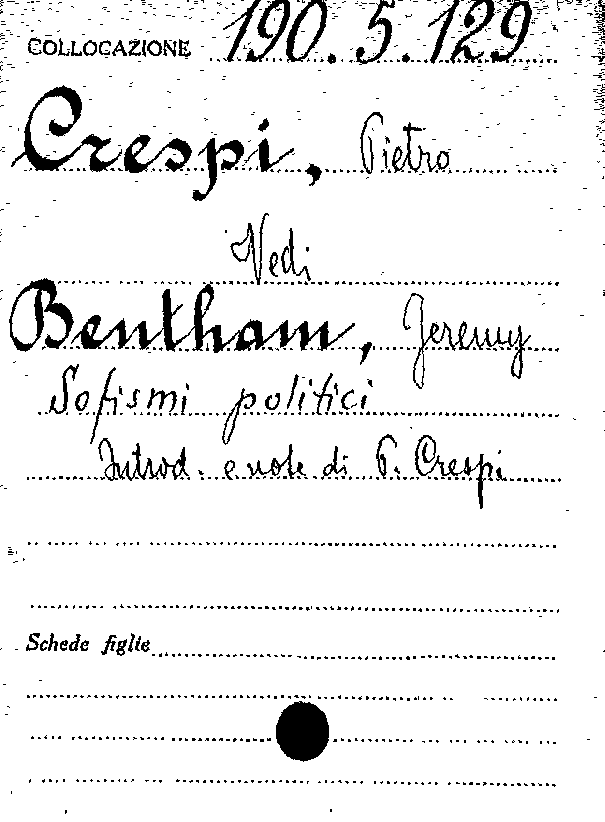 COLLOCAZIONE 190.5.129
Crespi, Pietro
Vedi
Bentham, Jeremy
Sofismi politici
Introd. e note di P. Crespi
Schede figlie